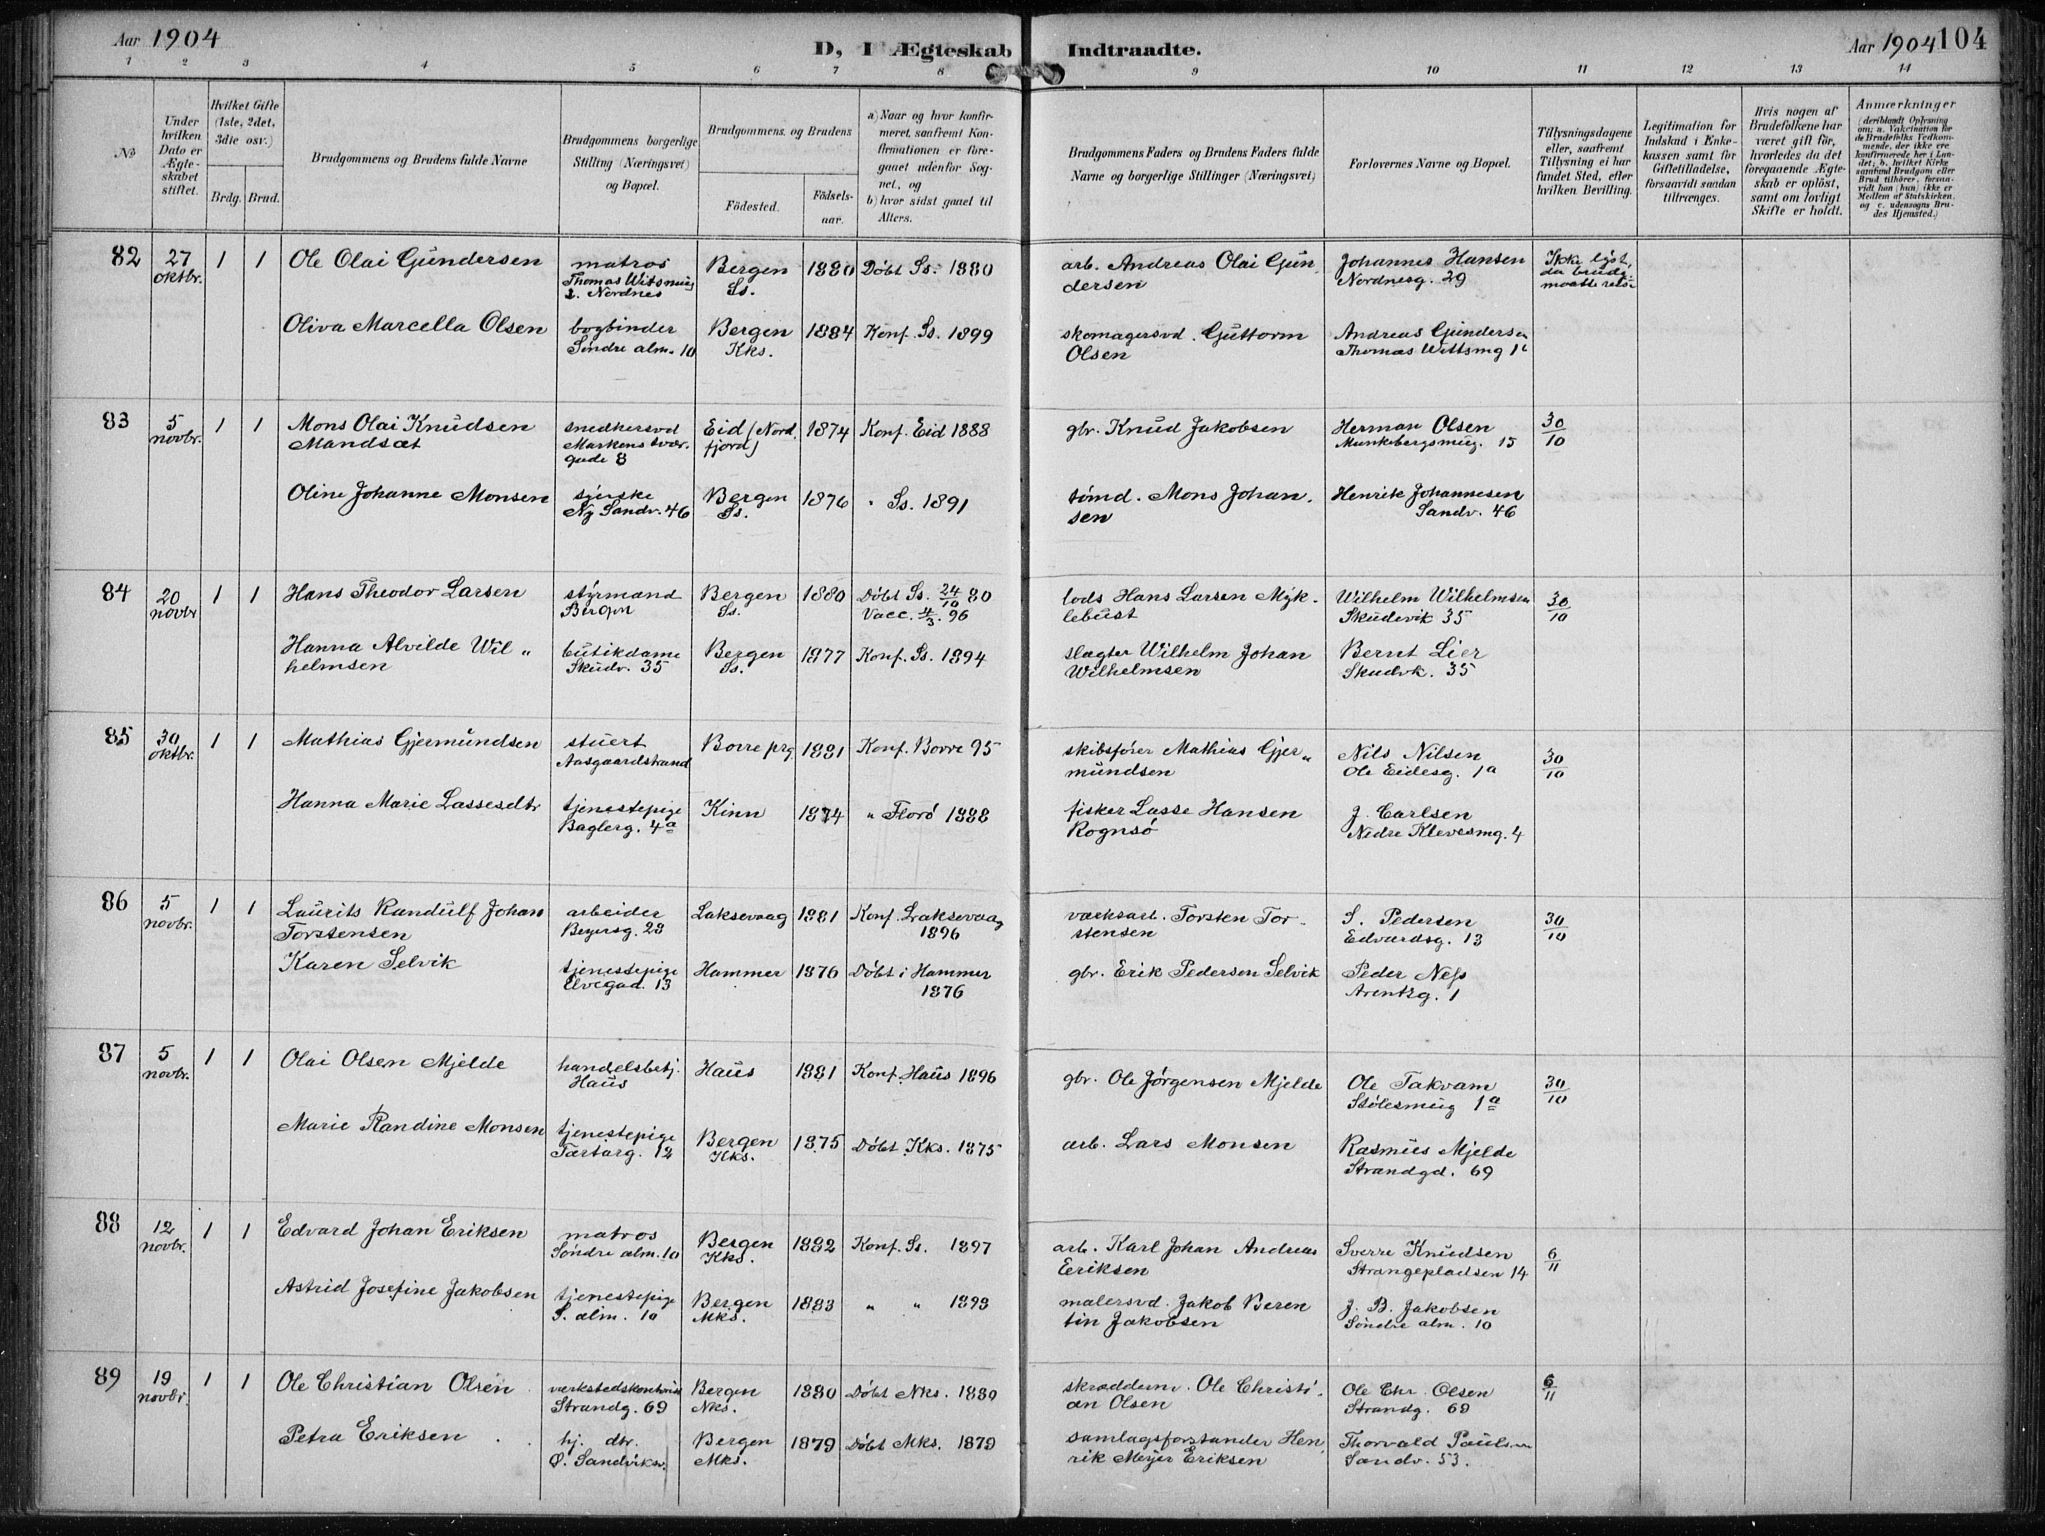 Aar 1904
D, I Ægteskab Indtraadte.
Aar 1904 104
1 2 3 4 5 6 7 8 9 10 11 12 13 14
No
Under hvilken Dato er Ægteskabet stiftet.
Hvilket Gifte (1ste, 2det, 3die osv.)
Brdg. Brud.
Brudgommens og Brudens fulde Navne
Brudgommens borgerlige Stilling (Næringsvei) og Bopæl.
Brudgommens og Brudens
Fødested.
Fødselsaar.
a) Naar og hvor konfirmeret, saafremt Konfirmationen er foregaaet udenfor Sognet, og
b) hvor sidst gaaet til Alters.
Brudgommens Faders og Brudens Faders fulde Navne og borgerlige Stillinger (Næringsvei)
Forlovernes Navne og Bopæl.
Tillysningsdagene eller, saafremt Tillysning ei har fundet Sted, efter hvilken Bevilling.
Legitimation for Indskud i Enkekassen samt for Giftetilladelse, forsaavidt saadan tiltrænges.
Hvis nogen af Brudefolkene har været gift før, hvorledes da det foregaaende Ægteskab er opløst, samt om lovligt Skifte er holdt.
Anmærkninger (deriblandt Oplysning om: a. Vakcination for de Brudefolks Vedkommende, der ikke ere konfirmerede her i Landet; b. hvilket Kirkesamfund Brudgom eller Brud tilhører, forsaavidt han (hun) ikke er Medlem af Statskirken, og c. udensogns Brudes Hjemsted.)
82 27 oktbr. 1 1 Ole Olai Gundersen
matros Thomas Witsmug 2. Nordnes
Bergen Ss. 1880 Døbt Ss. 1880
arb. Andreas Olai Gundersen
Johannes Hansen Nordnesg. 29
Ikke lyst, da brudg. maatte reise
Oliva Marcella Olsen
bogbinder Søndre alm. 10
Bergen Kks. 1884 Konf. Ss. 1899
skomagersvd. Guttorm Olsen
Andreas Gundersen Thomas Wittsmg
83 5 novbr. 1 1 Mons Olai Knudsen Mandsæt
snedkersvd Markens tvær. gade 8
Eid (Nord. fjord) 1874 Konf. Eid 1888
gbr. Knud Jakobsen
Herman Olsen Munkebergsmug. 15
30/10
Oline Johanne Monsen
syerske Ny Sandv. 46
Bergen Ss. 1876 " Ss. 1891
tømd. Mons Johan. sen
Henrik Johannesen Sandv. 46
84 20 novbr 1 1 Hans Theodor Larsen
styrmand Bergen
Bergen Ss. 1880 Døbt Ss. 24/10 80
Vacc. 4/3. 96
lods Hans Larsen Myk-lebust
Wilhelm Wilhelmsen Skudevik 35
30/10
Hanna Alvilde Wil " helmsen
butikdame Skudv. 35
Bergen Ss. 1877 Konf. Ss. 1894
slagter Wilhelm Johan Wilhelmsen
Bernt Lier Skudvk. 35
85 30 oktbr. 1 1 Mathias Gjermundsen
stuert Aasgaardstrand
Borre prg. 1881 Konf. Borre 95
skibsfører Mathias Gjer " mundsen
Nils Nilsen Ole Eidesg. 1a
30/10
Hanna Marie Lassesdtr
tjenestepige Baglerg. 4a
Kinn 1874 " Florø 1888
fisker Lasse Hansen Rognsø
J. Carlsen Nedre Klevesmg. 4
86 5 novbr. 1 1 Laurits Randulf Johan Torstensen
arbeider Beyersg. 23
Laksevaag 1881 Konf. Laksevaag 1896
værksarb. Torsten Tor-stensen
S. Pedersen Edvardsg. 13
30/10
Karen Selvik
tjenestepige Elvegad. 13
Hammer 1876 Døbt i Hammer 1876
gbr. Erik Pedersen Selvik
Peder Ness Arentzg. 1
87 5 novbr. 1 1 Olai Olsen Mjelde
handelsbetj. Haus
Haus 1881 Konf. Haus 1896
gbr. Ole Jørgensen Mjelde
Ole Takvam Stølesmug 1a
30/10
Marie Randine Monsen
tjenestepige Tartarg. 12
Bergen Kks. 1875 Døbt Kks. 1875
arb. Lars Monsen
Rasmus Mjelde Strandgd. 69
88 12 novbr. 1 1 Edvard Johan Eriksen
matros Søndre alm. 10
Bergen Kks. 1882 Konf. Ss. 1897
arb. Karl Johan Andreas Eriksen
Sverre Knudsen Strangepladsen 14
6/11
Astrid Josefine Jakobsen
tjenestepige S. alm. 10
Bergen Mks. 1883 " " 1898
malersvd. Jakob Beren tin Jakobsen
J. B. Jakobsen Søndre alm. 10
89 19 novbr. 1 1 Ole Christian Olsen
Strandg. 69
Bergen Nks. 1880 Døbt Nks. 1880
skrædderm. Ole Christi-an Olsen
Ole Chr. Olsen Strandg. 69
6/11
Petra Eriksen
hj. dtr. Ø. Sandviksv.
Bergen Mks. 1879 Døbt Mks. 1879
samlagsforstander Hen, rik Meyer Eriksen
Thorvald Paulsen Sandv. 53.